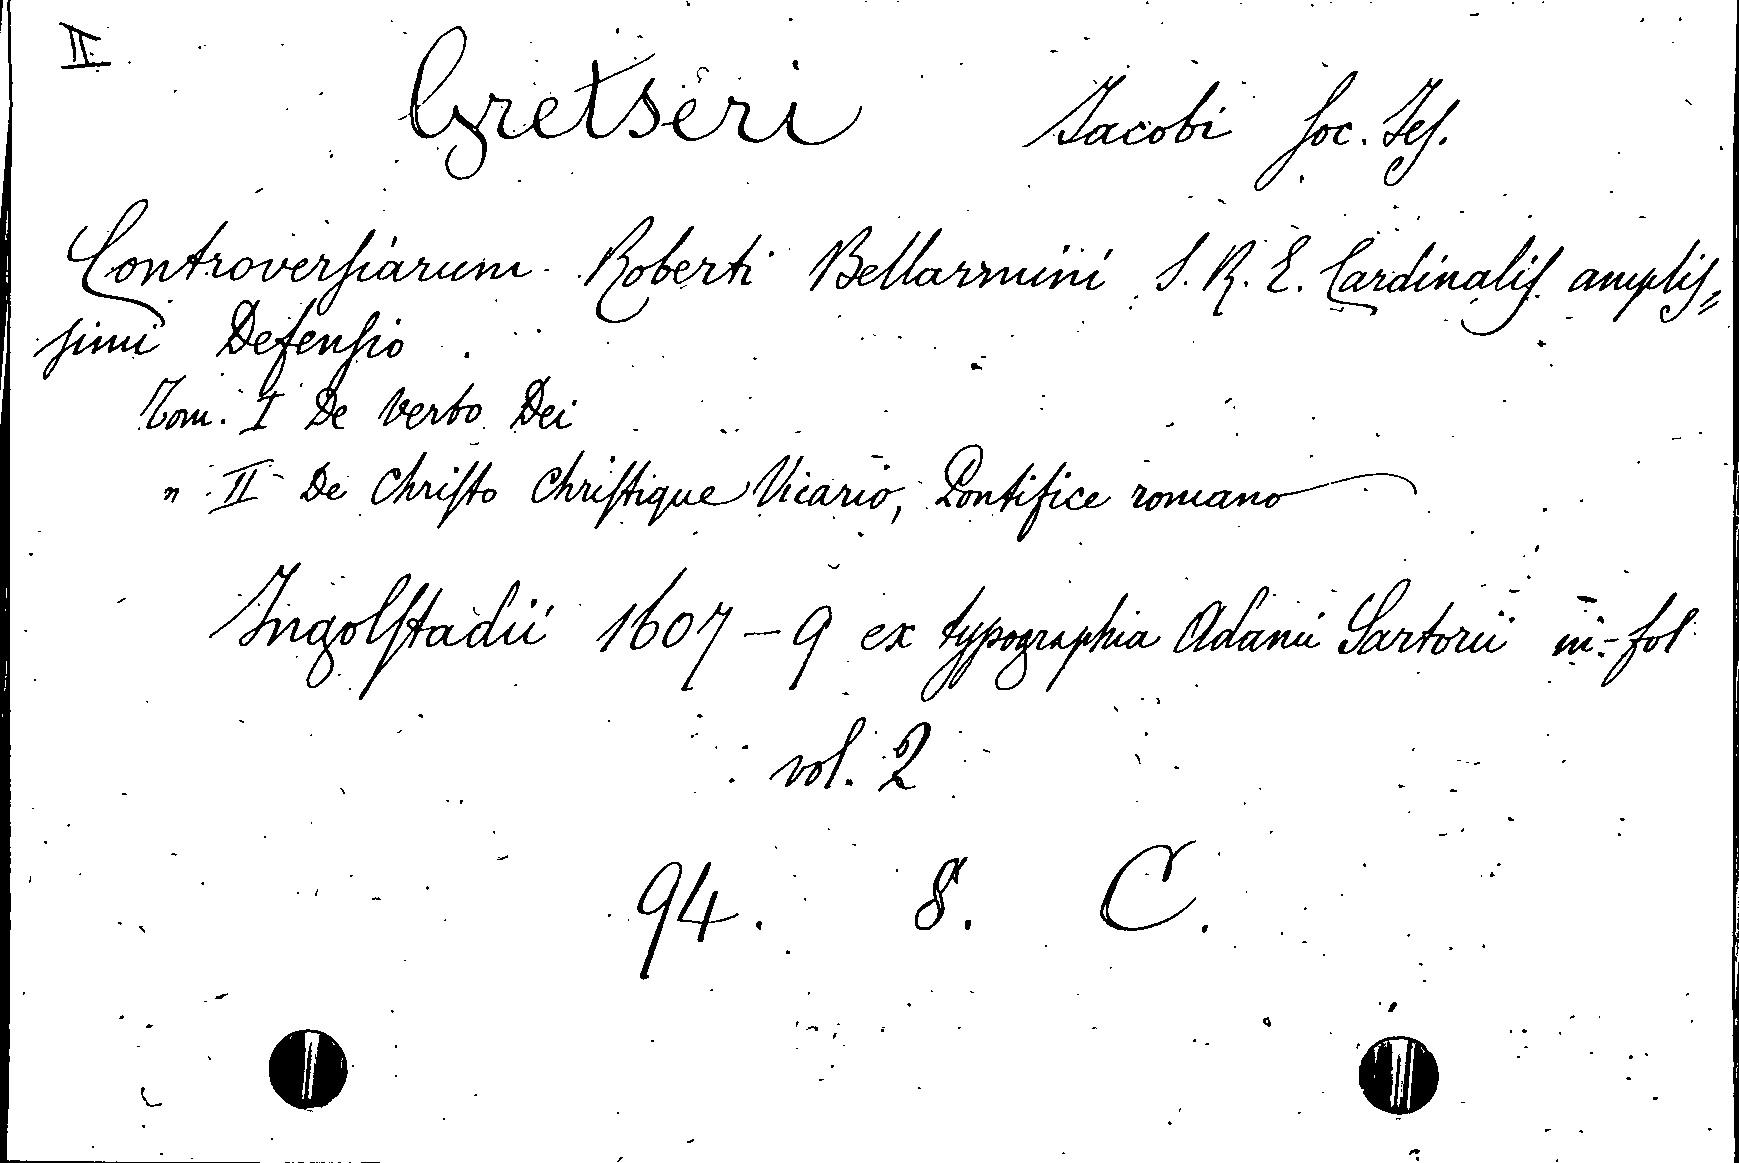 II.
Gretseri Jacobi Soc. Jes.
Controversiarum Roberti Bellarmini S. R. E. Cardinalis amplis=
simi Defensio.
Tom. I De Verbo Dei
" II De Christo Christique Vicario, Pontifice romano
Ingolstadii 1607-9 ex typographia Adami Sartorii in-fol
vol. 2
94. 8. C.